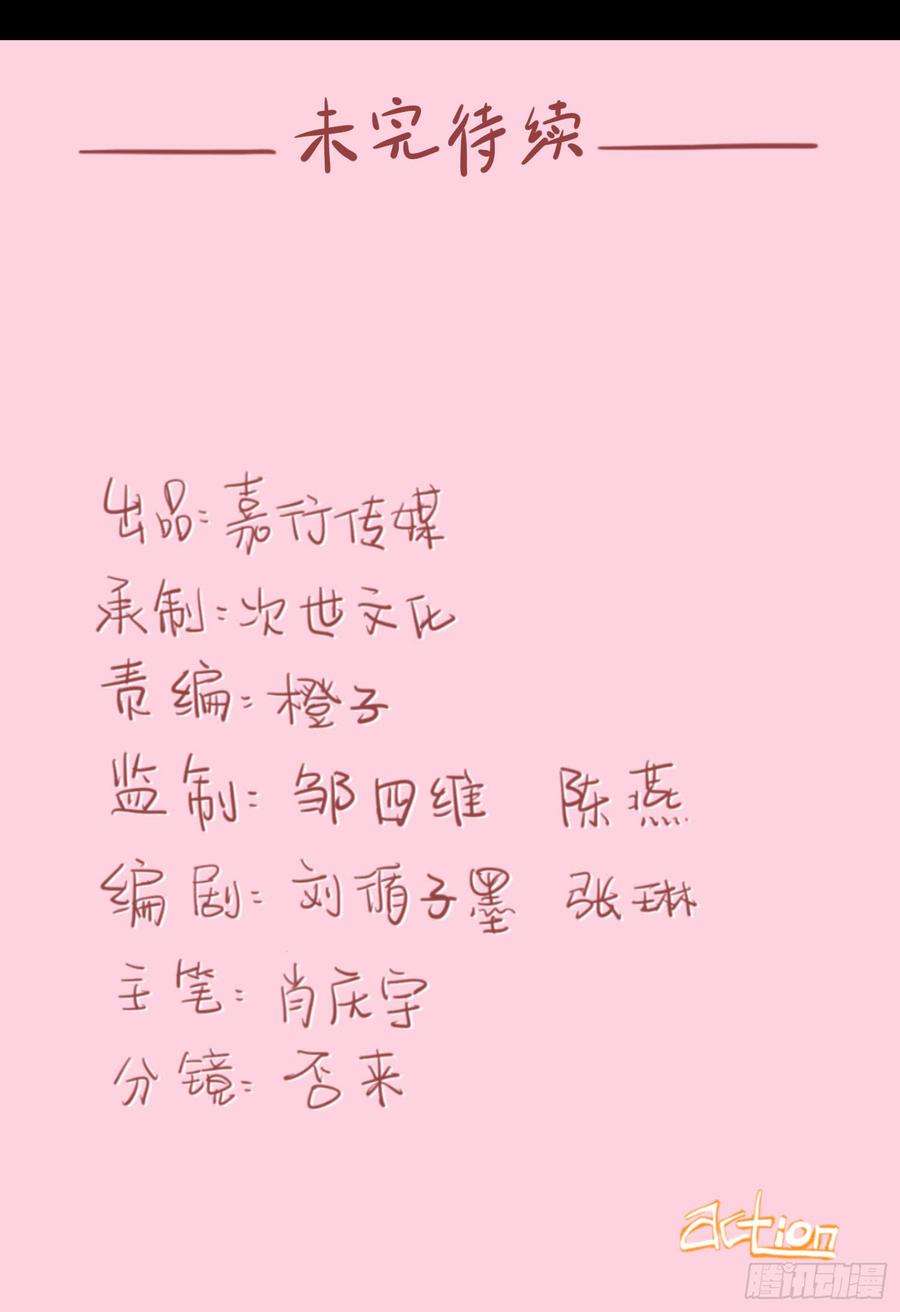 未完待续
出品:嘉行传媒
承制:次世文化
责编:橙子
监制:邹四维 陈燕
编剧:刘循子墨 张琳
主笔:肖庆宇
分镜:否来
action
腾讯动漫